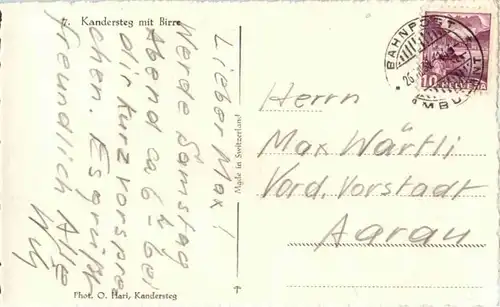 7. Kandersteg mit Birre
Lieber Max!
Werde Samstag
Abend ca 6 ½ bei
dir kurz vorspre
chen. Es grüßt
freundlich Alfr
Made in Switzerland
Phot. O. Hari, Kandersteg
BAHNPOST
AMBULANT
10
HELVETIA
Herrn
Max Wärtli
Vord. Vorstadt
Aarau